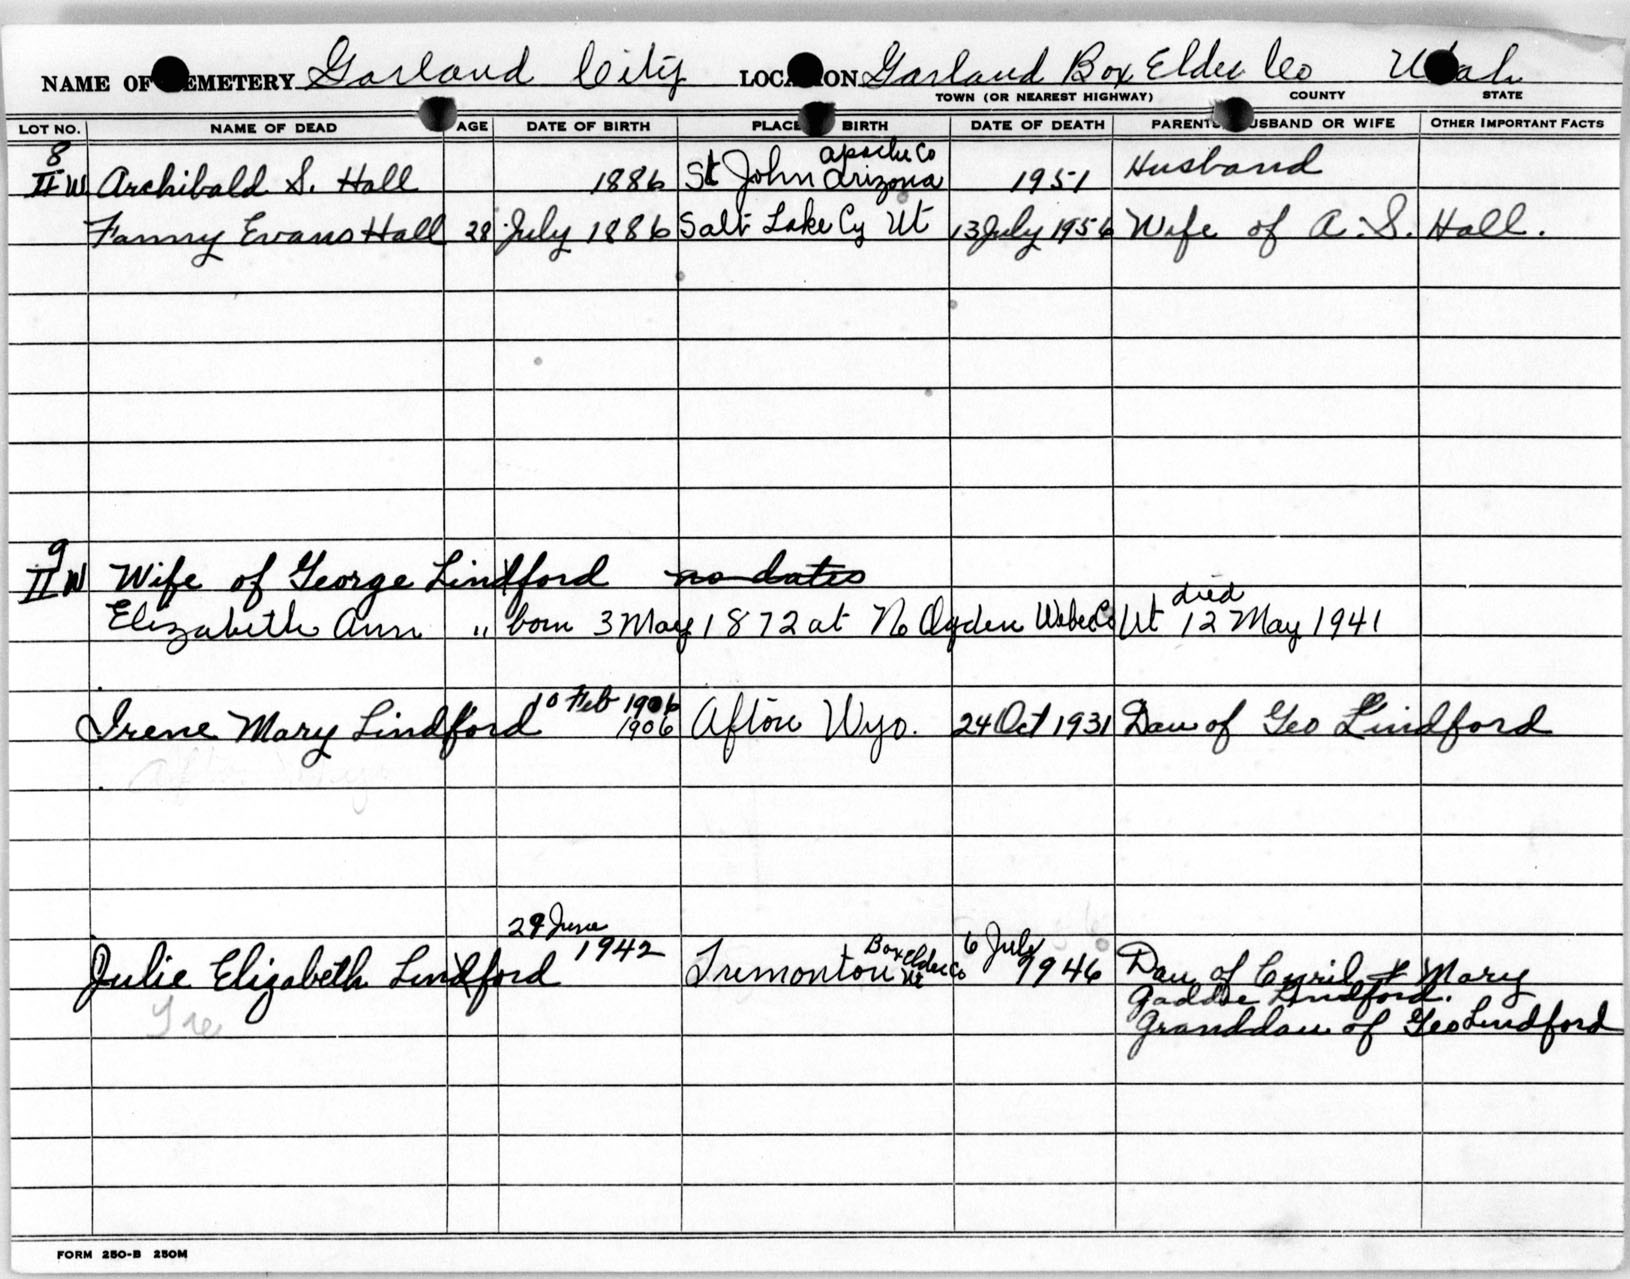 NAME OF CEMETERY Garland City LOCATION Garland Box Elder Co Utah
TOWN (OR NEAREST HIGHWAY) COUNTY STATE
LOT NO. NAME OF DEAD AGE DATE OF BIRTH PLACE BIRTH DATE OF DEATH PARENTS HUSBAND OR WIFE OTHER IMPORTANT FACTS
8
II W Archibald S. Hall 1886 St John Apache Co Arizona 1951 Husband
Fanny Evans Hall 28 July 1886 Salt Lake Cy Ut 13 July 1956 Wife of A. S. Hall.
9
II W Wife of George Lindford no dates
Elizabeth Ann " born 3 May 1872 at No Ogden Weber Co Ut died 12 May 1941
10 Feb 1906
Irene Mary Lindford 1906 Afton Wyo. 24 Oct 1931 Dau of Geo Lindford
29 June
Julie Elizabeth Lindford 1942 Tremonton Box Elder Co Ut 6 July 1946 Dau of Cyril & Mary
Gaddie Lindford.
Granddau of Geo Lindford
FORM 250-B 250M